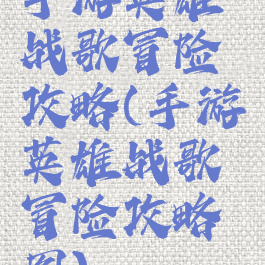 手游英雄
战歌冒险
攻略(手游
英雄战歌
冒险攻略
图)